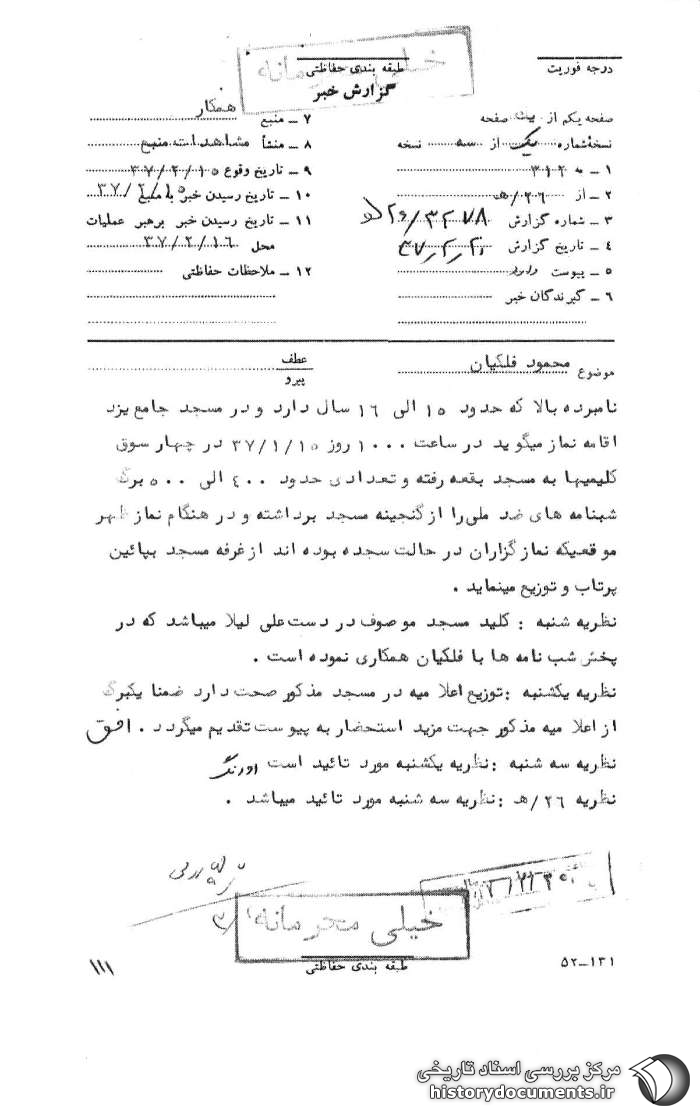 خیلی محرمانه
درجه فوریت
طبقه بندی حفاظتی
گزارش خبر
صفحه یکم از یک صفحه
نسخهٔ شماره یک از سه نسخه
۱ ـ به ۳۱۲
۲ ـ از ۲۶/هـ
۳ ـ شماره گزارش ۲۶/۳۲۷۸
۴ ـ تاریخ گزارش ۳۷٫۲٫۲۰
۵ ـ پیوست دارد
۶ ـ گیرندگان خبر
۷ ـ منبع همکار
۸ ـ منشأ مشاهدات منبع
۹ ـ تاریخ وقوع ۳۷/۲/۱۵
۱۰ ـ تاریخ رسیدن خبر به منبع ۳۷/۲/۱۵
۱۱ ـ تاریخ رسیدن خبر برهبر عملیات
محل ۳۷/۲/۱۶
۱۲ ـ ملاحظات حفاظتی
موضوع محمود فلکیان
عطف
پیرو
نامبرده بالا که حدود ۱۵ الی ۱۶ سال دارد و در مسجد جامع یزد
اقامه نماز میگوید در ساعت ۱۰۰۰ روز ۳۷/۱/۱۵ در چهار سوق
کلیمیها به مسجد بقعه رفته و تعدادی حدود ۴۰۰ الی ۵۰۰ برگ
شبنامه های ضد ملی را از گنجینه مسجد برداشته و در هنگام نماز ظهر
موقعیکه نماز گزاران در حالت سجده بوده اند از غرفه مسجد بپائین
پرتاب و توزیع مینماید .
نظریه شنبه : کلید مسجد موصوف در دست علی لیلا میباشد که در
پخش شب نامه ها با فلکیان همکاری نموده است .
نظریه یکشنبه : توزیع اعلامیه در مسجد مذکور صحت دارد ضمنا یکبرگ
از اعلامیه مذکور جهت مزید استحضار به پیوست تقدیم میگردد . افق
نظریه سه شنبه : نظریه یکشنبه مورد تائید است اورنگ
نظریه ۲۶/هـ : نظریه سه شنبه مورد تائید میباشد .
خیلی محرمانه
طبقه بندی حفاظتی
۵۲-۱۳۱
۱۱۱
مرکز بررسی اسناد تاریخی
historydocuments.ir